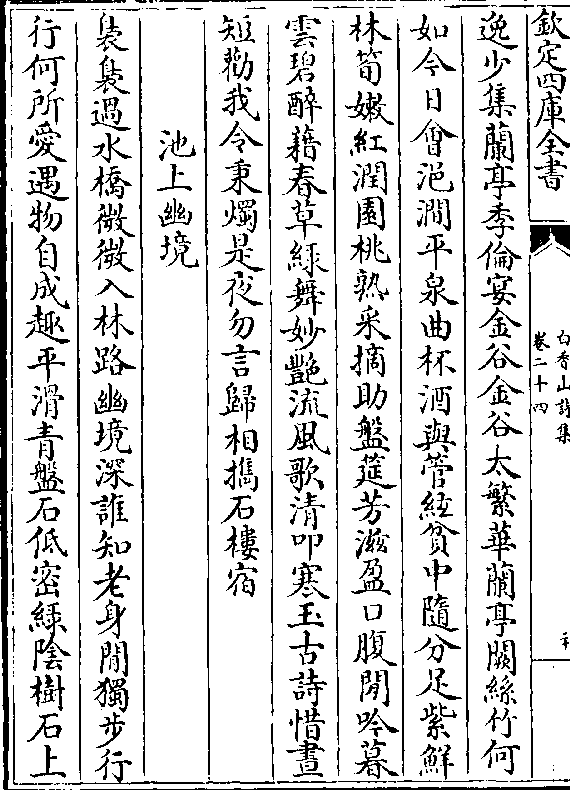 欽定四庫全書
白香山詩集
卷二十四
逸少集蘭亭季倫宴金谷金谷太繁華蘭亭闕絲竹何
如今日會浥澗平泉曲杯酒與管絃貧中隨分足紫鮮
林筍嫩紅潤園桃熟采摘助盤筵芳滋盈口腹閒吟暮
雲碧醉藉春草綠舞妙豔流風歌清叩寒玉古詩惜晝
短勸我令秉燭是夜勿言歸相攜石樓宿
池上幽境
裊裊過水橋微微入林路幽境深誰知老身閒獨步行
行何所愛遇物自成趣平滑青盤石低密綠陰樹石上